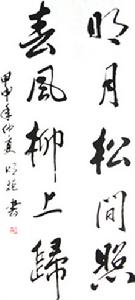 明月松間照
春風柳上歸
甲申年仲夏
書